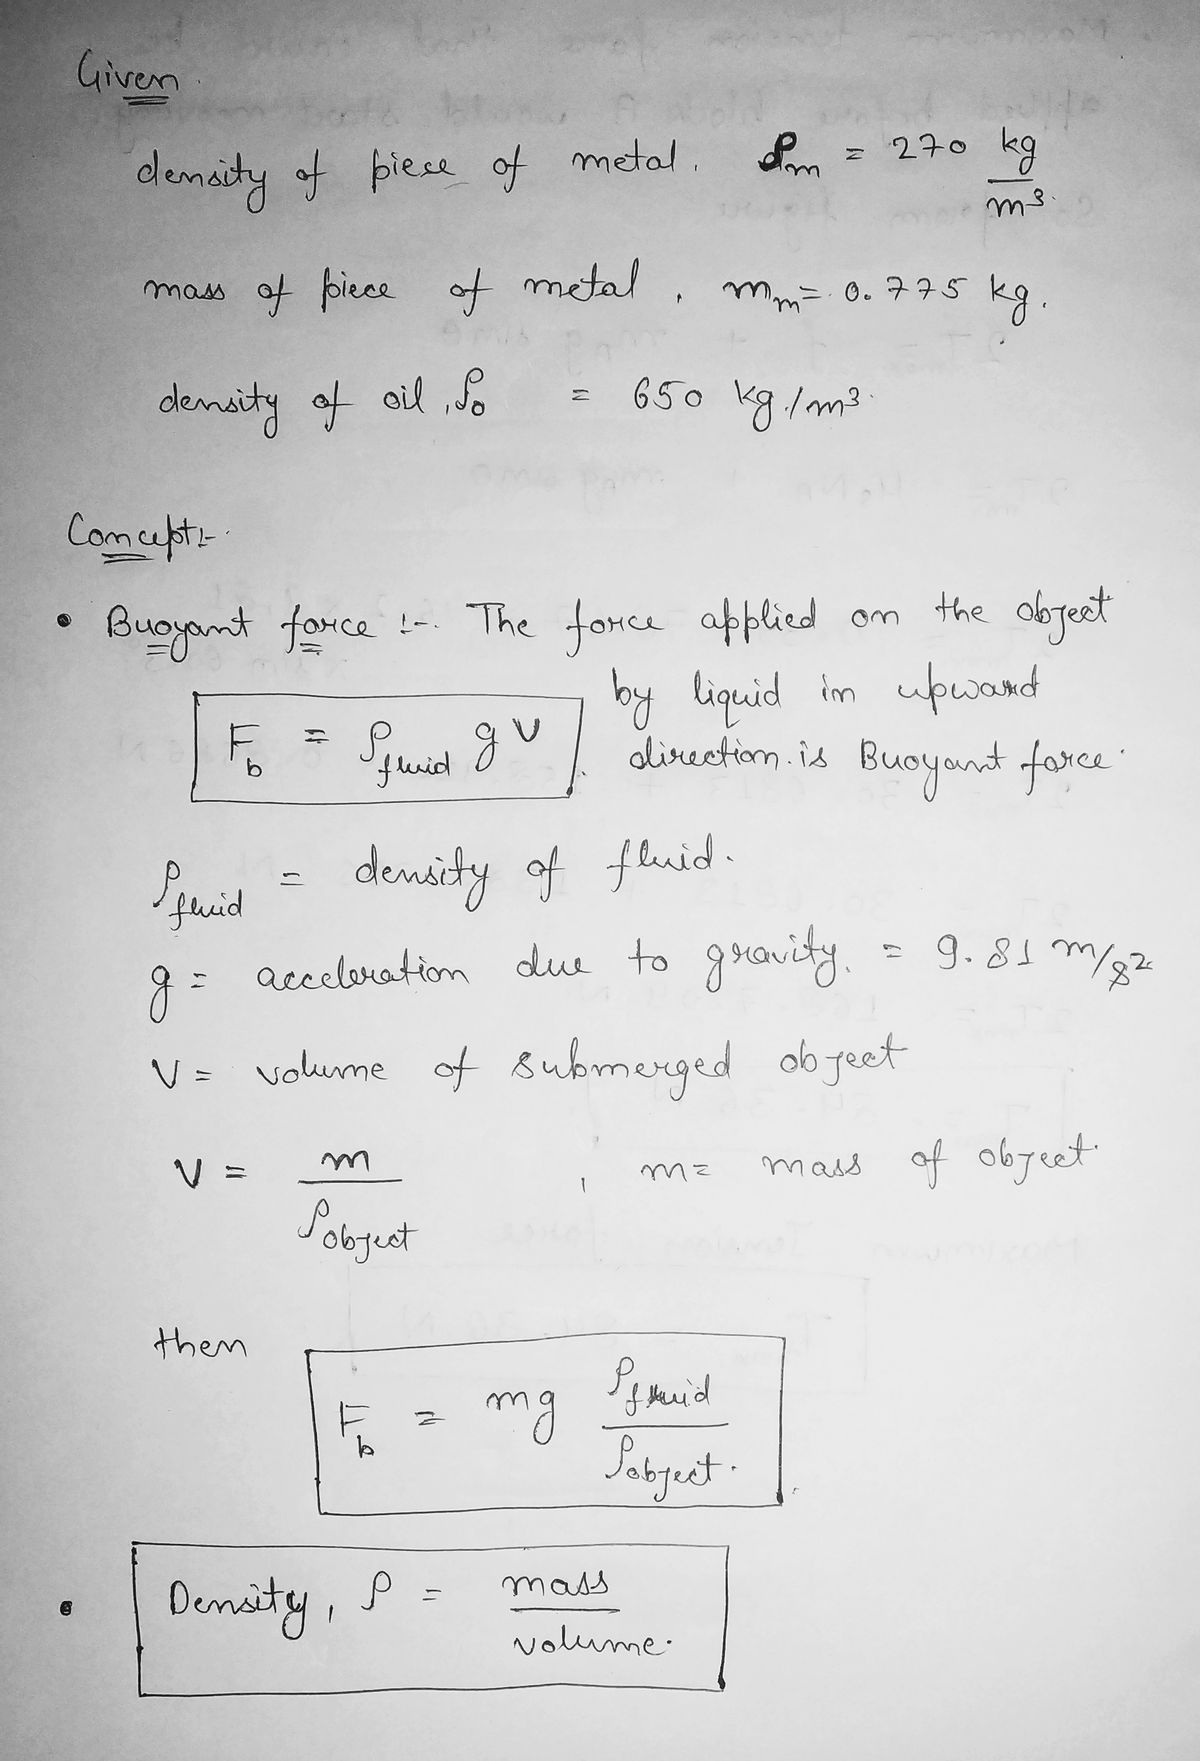 Given.
density of piece of metal, ρm = 270 kg/m³.
mass of piece of metal, mm = 0.775 kg.
density of oil, ρo = 650 kg/m³.
Concept:-
• Buoyant force :- The force applied on the object
by liquid in upward
Fb = ρfluid g V
direction is Buoyant force.
ρfluid = density of fluid.
g = acceleration due to gravity. = 9.81 m/s²
V = volume of submerged object
V = m/ρobject, m = mass of object.
then
Fb = mg ρfluid/ρobject.
• Density, ρ = mass/volume.